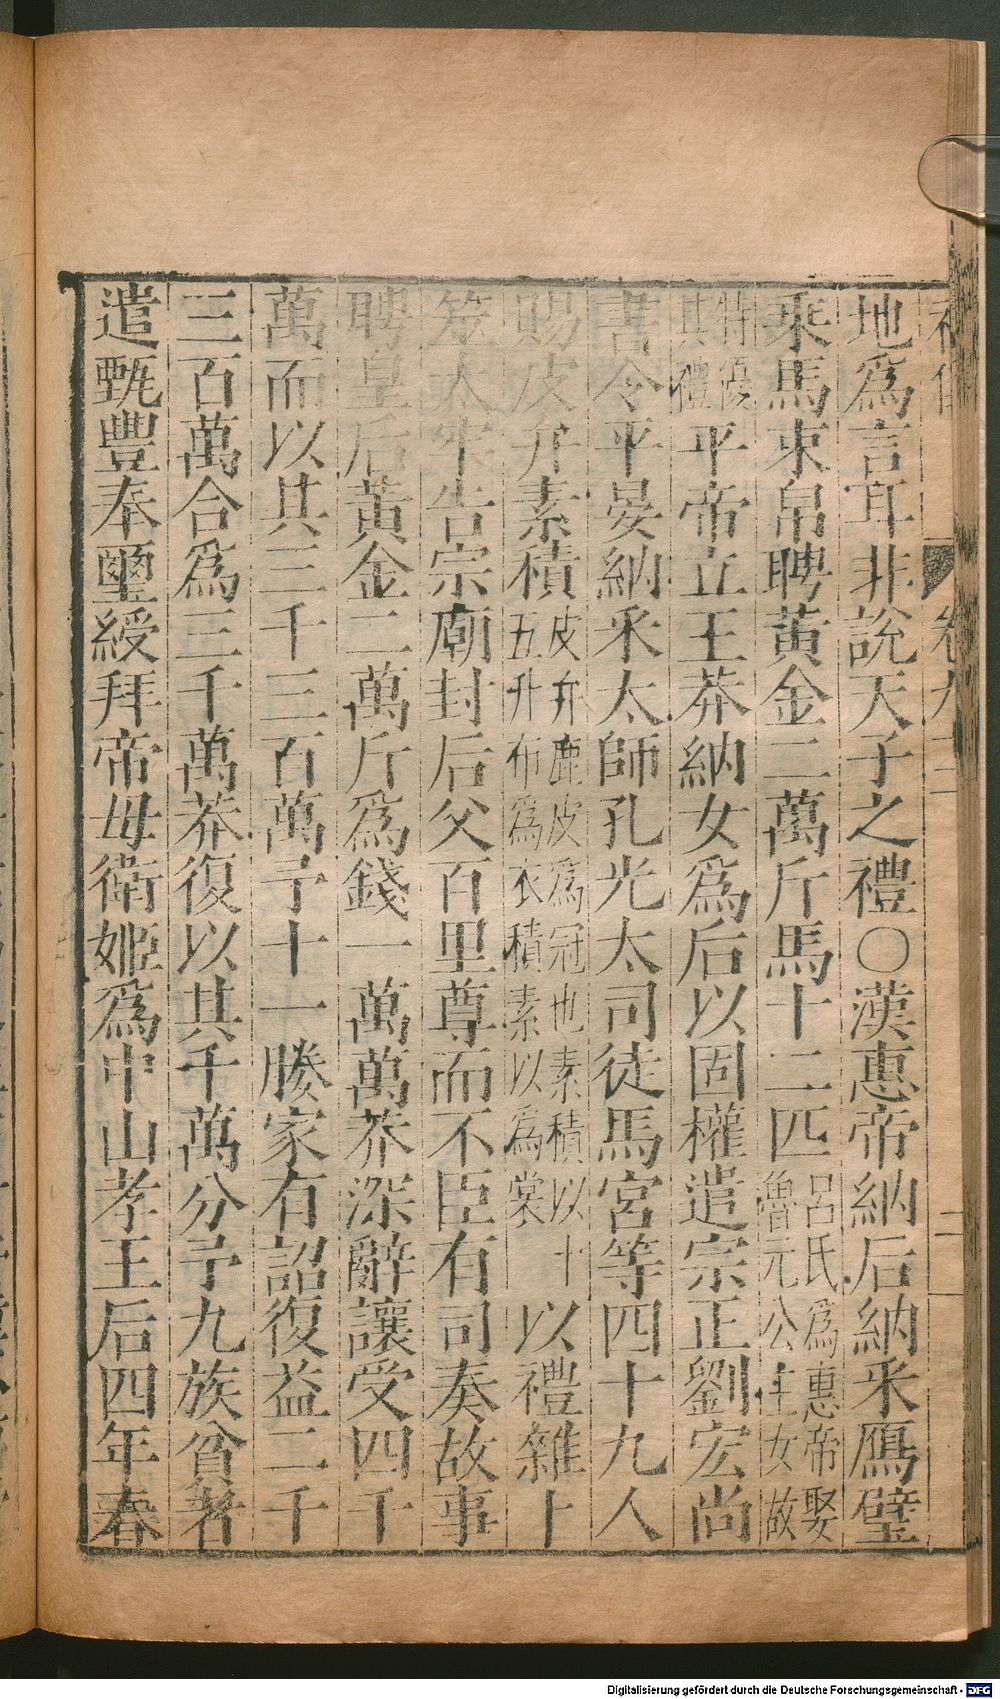 卷九十二 二
地爲言耳非說天子之禮○漢惠帝納后納釆鴈璧
乘馬束帛聘黃金二萬斤馬十二匹呂氏爲惠帝娶魯元公主女故
特優其禮平帝立王莽納女爲后以固權遣宗正劉宏尚
書令平晏納釆太師孔光太司徒馬宮等四十九人
賜皮弁素積皮弁鹿皮爲冠也素積以十五升布爲衣積素以爲裳以禮雜卜
筮太牢告宗廟封后父百里尊而不臣有司奏故事
聘皇后黃金二萬斤爲錢一萬萬莽深辭讓受四千
萬而以其三千三百萬予十一媵家有詔復益二千
三百萬合爲三千萬莽復以其千萬分予九族貧者
遣甄豐奉璽綬拜帝母衛姬爲中山孝王后四年春
Digitalisierung gefördert durch die Deutsche Forschungsgemeinschaft - DFG